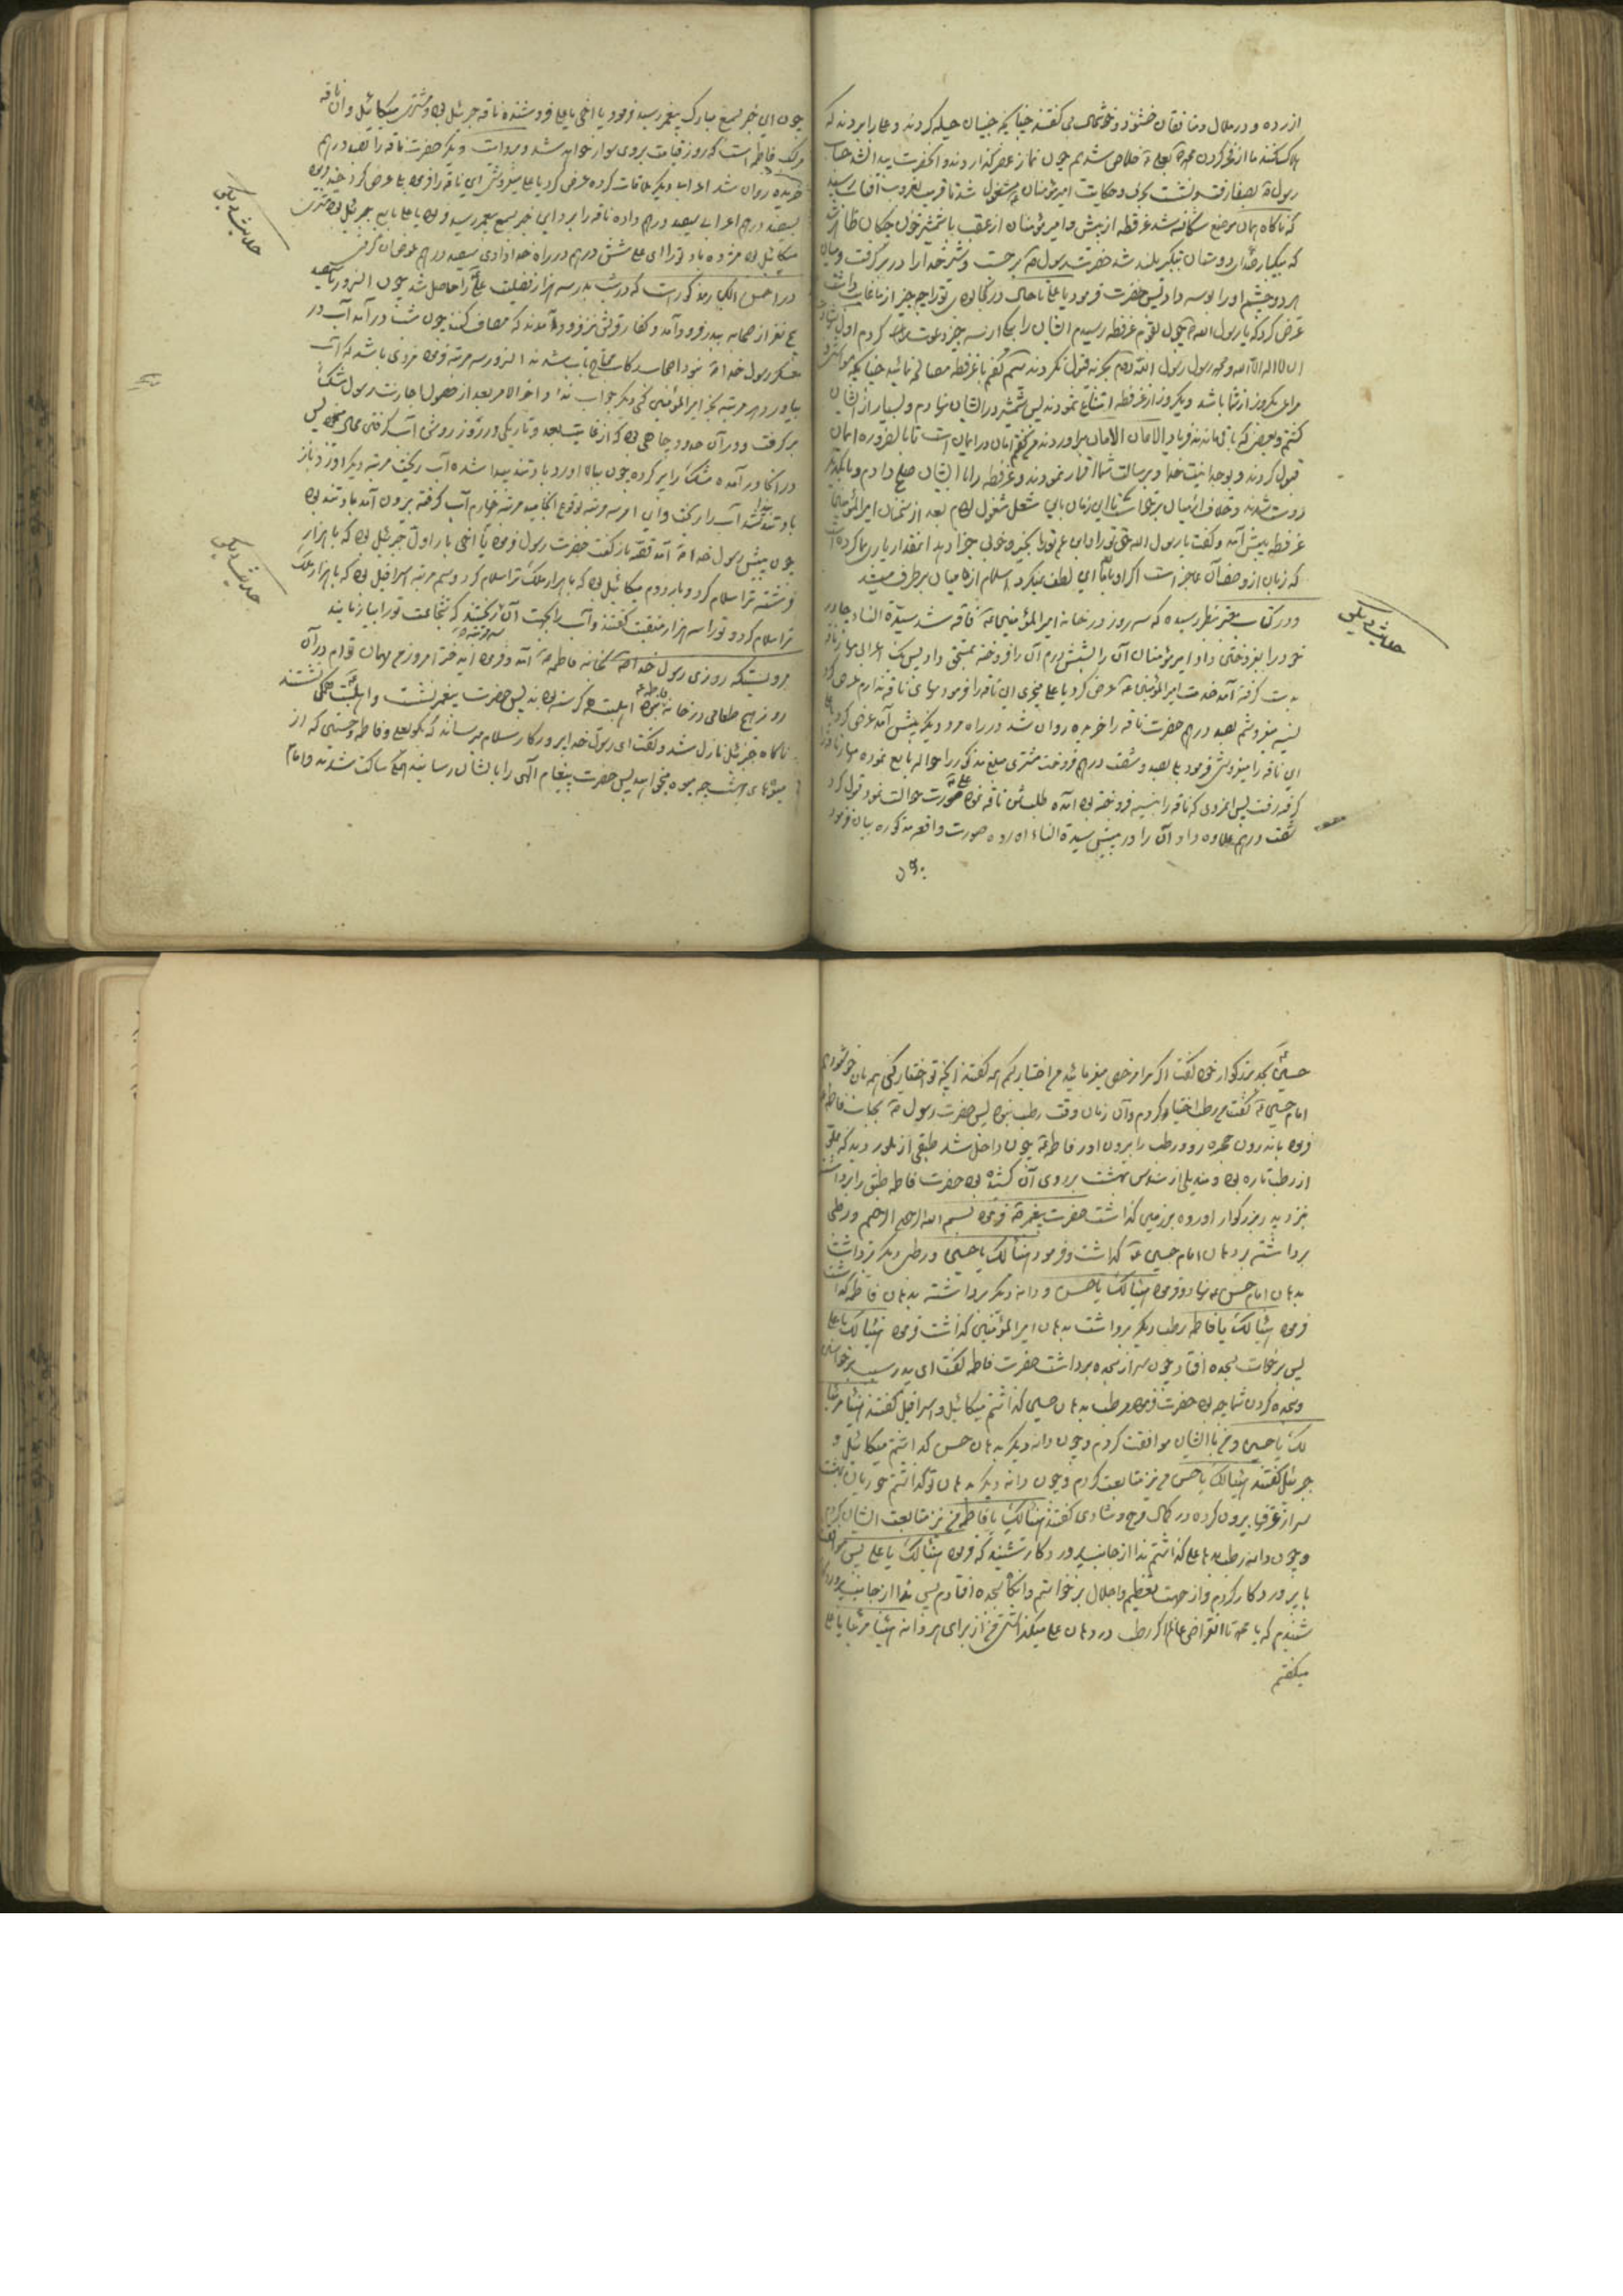 ازرده و در ملال و منافقان خشنود و خوشحال می گفتند چنانکه جنیان حیله کردند و علی را بردند که
هلاک کنند ما از فخر کردن محمد بعلی خلاص شدیم چون نماز عصر گذاردند و آنحضرت پیدا نشد جناب
رسول بصفا رفت و نشت و حکایت امیرمؤمنان مشغول شد تا قریب بغروب آفتاب رسید
که ناگاه همان موضع شکافته شد عرفطه از پیش و امیرمؤمنان از عقب با شمشیر خون چکان ظاهر
که بیکبار صدای دوستان بتکبیر بلند شد حضرت رسول برجست و شیر خدا را در بر گرفت و میان
هر دو چشم او را بوسه داد پس حضرت فرمود یا علی تا حال در کجا بودی تو را چه چیز از ما غایب داشت
عرض کرد که یا رسول الله چون بقوم عرفطه رسیدم ایشان را بیکی از سه چیز دعوت کردم اول
ان لا اله الا الله و محمد رسول الله قبول نکردند گفتم با عرفطه مصالحه نمائید چنانکه
مراعی یکروز از شما باشد و یکروز از عرفطه امتناع نمودند پس شمشیر در ایشان نهادم و بسیار از ایشان
کشتم و بعضی که باقی ماندند فریاد الامان الامان برآوردند من گفتم امان در ایمان است تا بالضروره ایمان
قبول کردند و بوحدانیت خدا و برسالت شما اقرار نمودند و عرفطه را با ایشان صلح دادم و با یکدیگر
دوست شدند و خلاف از میان برخاست تا این زمان باین شغل مشغول بودم بعد از سخنان امیرالمؤمنین
عرفطه پیش آمد و گفت یا رسول الله حق تو را و ابن عم تو را بخیر و خوبی جزا دهد آنمقدار یاری ما کرده است
که زبان از وصف آن عاجز است اگر او با ما این لطف نمیکرد اسلام از ما میان برطرف میشد
و در کتاب معتبر بنظر رسیده که سه روز در خانه امیرالمؤمنین فاقه شد سیدة النساء چادر
خود را بفروختن داد امیرمؤمنان آن را بشش درم آن را فروخته بمستحق داد پس یک اعرابی مهار ناقه
بدست گرفته آمد خدمت امیرالمؤمنین عرض کرد یا علی میخری این ناقه را فرمود بهای ناقه ندارم عرض کرد
نسیه میفروشم بصد درهم حضرت ناقه را خریده روان شد در راه مرد دیگر پیش آمد عرض کرد یا علی
این ناقه را میفروشی فرمود بلی بصد و شصت درهم فروخت مشتری مبلغ مذکور را حواله بایع نموده مهار ناقه را
گرفته رفت پس اعرابی که ناقه را بنسیه فروخته بود آمده طلب ثمن ناقه نمود حضرت حوالت نمود قبول کرد
شصت درهم علاوه داد آن را در پیش سیدة النساء آورده صورت واقعه مذکوره بیان فرمود
چون
حدیث دیگر
چون این خبر بسمع مبارک پیغمبر رسید فرمود یا اخی یا علی فروشنده ناقه جبرئیل بود و مشتری میکائیل و آن ناقه
ملک فاطمه است که روز قیامت بروی سوار خواهد شد و بروایت دیگر حضرت ناقه را بصد درهم
خریده روان شد اعرابی دیگر ملاقات کرده عرض کرد یا علی میفروشی این ناقه را فرمود بلی عرض کرد
بسیصد درهم اعرابی سیصد درهم داده ناقه را برد این خبر بسمع پیغمبر رسید فرمود یا علی بایع جبرئیل بود مشتری
میکائیل بود مژده باد تو را ای علی شش درهم در راه خدا دادی سیصد درهم عوض آن گرفتی
در احسن الکبار مذکور است که در شب بدر سه هزار فضیلت علی را حاصل شد چون آنروز
نفر از صحابه ببدر فرود آمد و کفار قریش نیز فرود آمدند که مصاف کنند چون شب درآمد آب در
لشکر رسول خدا نبود اصحاب محتاج بآب شدند آنسرور سه مرتبه فرمود مردی باشد که آب
بیاورد هر مرتبه بجز امیرالمؤمنین کسی دیگر جواب نداد آخر الامر بعد از حصول اجازت رسول مشک
برگرفت و در آن حدود چاهی بود که از غایت بعد و تاریکی در روز روشن آب گرفتن محال بود پس
در آنجا درآمده مشک را پر کرده چون بیالا آورد باد تند پیدا شده آب ریخت مرتبه دیگر آورد باز
باد تند شد آب را ریخت و این امر سه مرتبه بوقوع انجامید مرتبه چهارم آب گرفته بیرون آمد باد تند بود
چون پیش رسول خدا آمد قصه بازگفت حضرت رسول فرمود یا اخی بار اول جبرئیل بود که با هزار
فرشته ترا سلام کرد و بار دوم میکائیل بود که با هزار ملک ترا سلام کرد و سیم مرتبه اسرافیل بود که با هزار ملک
ترا سلام کرد و تو را سه هزار منقبت گفتند و آب را بجهت آن ریختند که شجاعت تو را بیازمایند
مرویست که روزی رسول خدا بخانه فاطمه آمد و فرمود ایدختر امروز من مهمان توام در آن
روز هیچ طعامی در خانه نبود اهلبیت گرسنه بودند پس حضرت پیغمبر نشست و اهلبیت همگی نشستند
ناگاه جبرئیل نازل شد و گفت ای رسول خدا پروردگار سلام میرساند که بگو بعلی و فاطمه و حسنین که از
میوه های بهشت چه میوه میخواهید پس حضرت پیغام الهی را بایشان رسانید همگی ساکت شدند و امام
حدیث دیگر
حدیث دیگر
حسین بجد بزرگوار خود گفت اگر مرا مرخص میفرمائید من اختیار کنم همه گفتند آنچه تو اختیار کنی بهمان خوشنودیم
امام حسین گفت من رطب اختیار کردم و آن زمان وقت رطب نبود پس حضرت رسول بجانب فاطمه
فرمود باندرون حجره رو و رطب را بیرون آور فاطمه چون داخل شد طبقی از بلور دید که مملو
از رطب تازه بود و مندیلی از سندس بهشت بر روی آن کشیده بود حضرت فاطمه طبق را برداشت
نزد پدر بزرگوار آورده بر زمین گذاشت حضرت پیغمبر فرمود بسم الله الرحمن الرحیم و رطبی
برداشته بر دهان امام حسین گذاشت و فرمود هنیئا لک یا حسین و رطب دیگر برداشت
بدهان امام حسن نهاد و فرمود هنیئا لک یا حسن و دانه دیگر برداشته بدهان فاطمه گذاشت
فرمود هنیئا لک یا فاطمه رطب دیگر برداشت بدهان امیرالمؤمنین گذاشت فرمود هنیئا لک یا علی
پس برخاست بسجده افتاد چون سر از سجده برداشت حضرت فاطمه گفت ای پدر سبب برخواستن
و سجده کردن شما چه بود حضرت فرمود رطب بدهان حسین گذاشتم میکائیل و اسرافیل گفتند هنیئا مریئا
لک یا حسین و من با ایشان موافقت کردم و چون دانه دیگر بدهان حسن گذاشتم میکائیل و
جبرئیل گفتند هنیئا لک یا حسن من نیز متابعت کردم و چون دانه دیگر بدهان تو گذاشتم حوریان بهشت
سر از غرفها بیرون کرده در کمال فرح و شادی گفتند هنیئا لک یا فاطمه من نیز متابعت ایشان کردم
و چون دانه رطب بدهان علی گذاشتم ندا از جانب پروردگار شنیدم که فرمود هنیئا لک یا علی پس موافقت
با پروردگار کردم و از جهت تعظیم و اجلال برخواستم و آنگاه بسجده افتادم پس ندا از جانب پروردگار
شنیدم که یا محمد تا انقراض عالم اگر رطب در دهان علی میگذاشتی من از برای هر دانه هنیئا مریئا یا علی
میگفتم